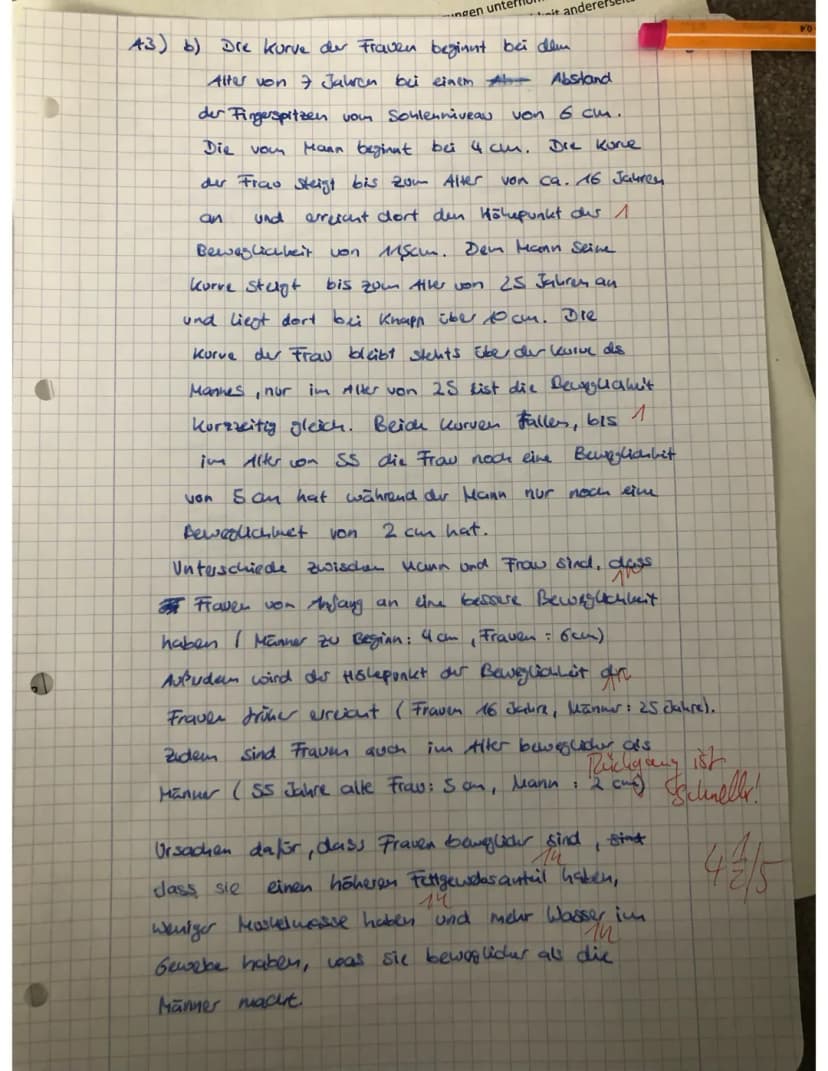 ungen untern
it anderersei
A3) b) Die Kurve der Frauen beginnt bei dem
Alter von 7 Jahren bei einem Abstand
der Fingerspitzen vom Sohlenniveau von 6 cm.
Die vom Mann beginnt bei 4 cm. Die Kurve
der Frau steigt bis zum Alter von ca. 16 Jahren
an und erreicht dort den Höhepunkt der 1
Beweglichkeit von 11,5cm. Dem Mann seine
Kurve steigt bis zum Alter von 25 Jahren an
und liegt dort bei knapp über 10 cm. Die
Kurve der Frau bleibt stehts über der Kurve des
Mannes, nur im Alter von 25 ist die Beweglichkeit
kurzzeitig gleich. Beide Kurven fallen, bis 1
im Alter von 55 die Frau noch eine Beweglichkeit
von 5 cm hat während der Mann nur noch eine
Beweglichkeit von 2 cm hat.
Unterschiede zwischen Mann und Frau sind, dass
Frauen von Anfang an eine bessere Beweglichkeit
haben (Männer zu Beginn: 4 cm, Frauen: 6cm)
Außerdem wird der Höhepunkt der Beweglichkeit
Frauen früher erreicht (Frauen 16 Jahre, Männer: 25 Jahre).
Zudem sind Frauen auch im Alter beweglicher als
Rückgang ist
Männer (55 Jahre alte Frau: 5 cm, Mann: 2 cm) schneller!
Ursachen dafür, dass Frauen beweglicher sind, sind
dass sie einen höheren Fettgewebsanteil haben,
4 1/2/5
weniger Muskelmasse haben und mehr Wasser im
Gewebe haben, was sie beweglicher als die
Männer macht.